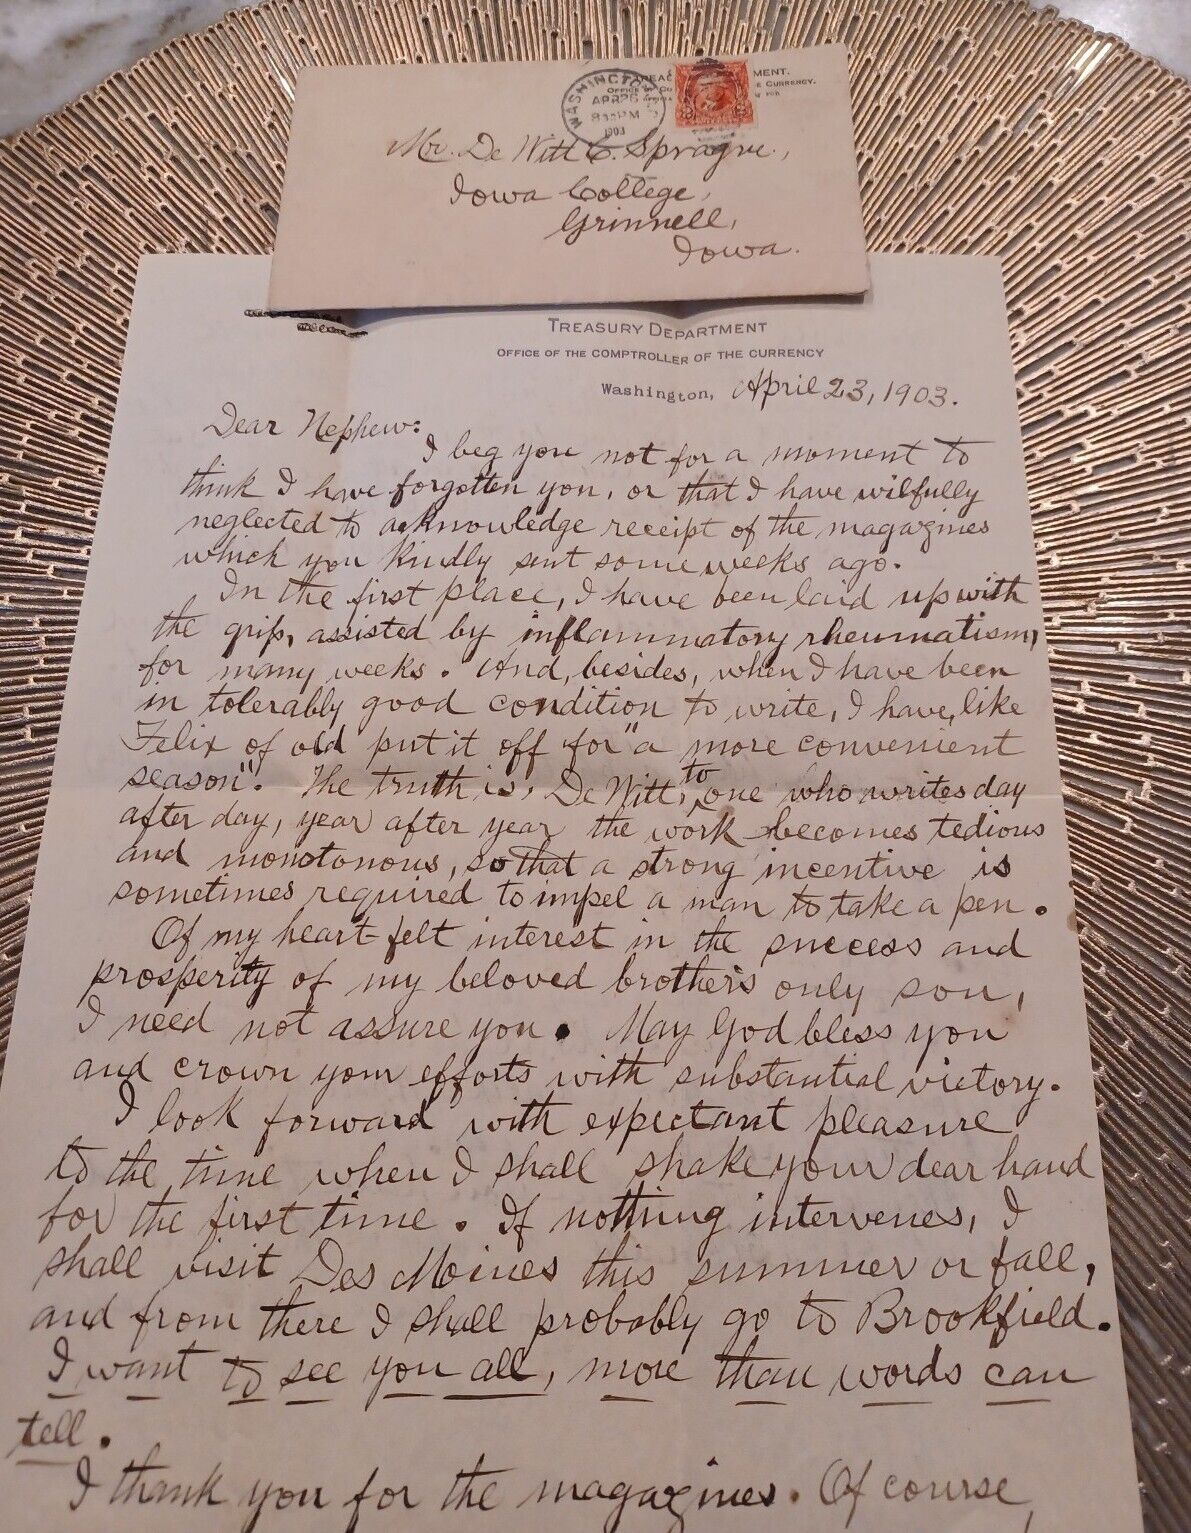 WASHINGTON
APR 26
8 30 PM
1903
TREA
MENT.
OFFICE OF
CURRENCY.
FOR
Mr. De Witt C. Sprague,
Iowa College,
Grinnell,
Iowa.
TREASURY DEPARTMENT
OFFICE OF THE COMPTROLLER OF THE CURRENCY
Washington, April 23, 1903.
Dear Nephew:
I beg you not for a moment to
think I have forgotten you, or that I have wilfully
neglected to acknowledge receipt of the magazines
which you kindly sent some weeks ago.
In the first place, I have been laid up with
the grip, assisted by inflammatory rheumatism,
for many weeks. And, besides, when I have been
in tolerably good condition to write, I have, like
Felix of old put it off for "a more convenient
season". The truth is, De Witt, to one who writes day
after day, year after year the work becomes tedious
and monotonous, so that a strong incentive is
sometimes required to impel a man to take a pen.
Of my heart-felt interest in the success and
prosperity of my beloved brother's only son,
I need not assure you. May God bless you
and crown your efforts with substantial victory.
I look forward with expectant pleasure
to the time when I shall shake your dear hand
for the first time. If nothing intervenes, I
shall visit Des Moines this summer or fall,
and from there I shall probably go to Brookfield.
I want to see you all, more than words can
tell.
I thank you for the magazines. Of course,